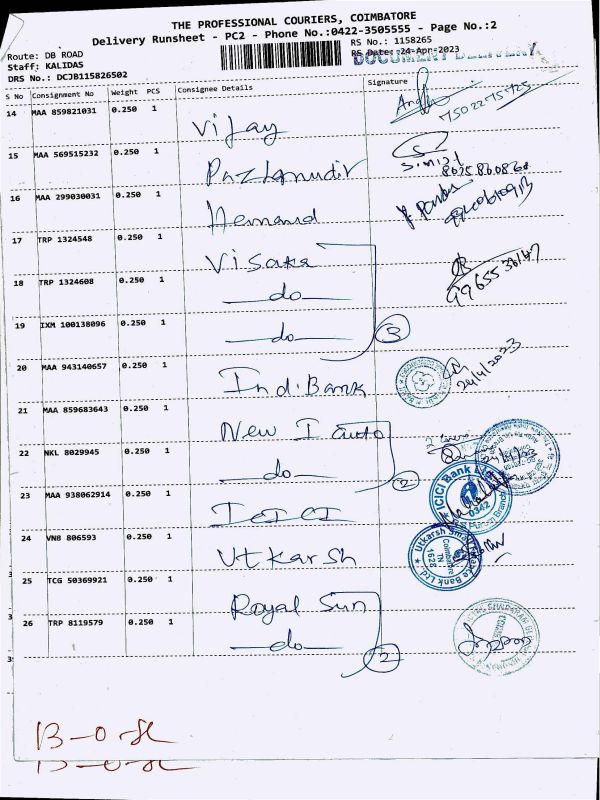 THE PROFESSIONAL COURIERS, COIMBATORE
Delivery Runsheet - PC2 - Phone No.:0422-3505555 - Page No.:2
Route: DB ROAD
RS No.: 1158265
Staff: KALIDAS
RS Date: 24-Apr-2023
DOCUMENT DELIVERY
DRS No.: DCJB115826502
S No Consignment No Weight PCS Consignee Details Signature
14 MAA 859821031 0.250 1 Vijay 75022 75725
15 MAA 569515232 0.250 1
16 MAA 299030031 0.250 1 Hemand
17 TRP 1324548 0.250 1 Visaka
18 TRP 1324608 0.250 1 do
19 IXM 100138096 0.250 1 do 3
20 MAA 943140657 0.250 1 Ind.Bank 24/4/2023
21 MAA 859683643 0.250 1 New I auto
22 NKL 8029945 0.250 1 do 2
23 MAA 938062914 0.250 1 ICICI ICICI Bank Ltd. 0342
24 VNB 806593 0.250 1 Utkarsh Utkarsh Small Finance Bank Ltd. Coimbatore TN 1628
25 TCG 50369921 0.250 1 Royal Sun
26 TRP 8119579 0.250 1 do 2